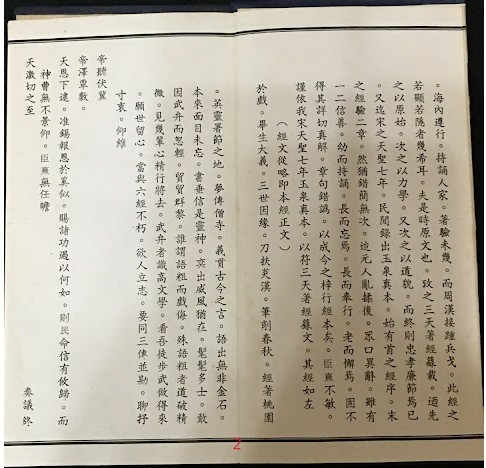 。海內遵行。持誦人家。著驗未幾。而周漢接踵兵戈。此經之
若顯若隱者幾希耳。夫是時原文也。攷之三天著經籙載。迺先
之以原始。次之以力學。又次之以道貌。而終則忠孝廉節焉已
。又迄宋之天聖七年。民間錄出玉泉真本。始有首之經序。末
之經驗二章。然猶錯簡無次。迨元人亂揉後。眾口異辭。雖有
一二信善。幼而持誦。長而忘焉。長而奉行。老而懈焉。固不
得其詳切真解。章句錯譌。以成今之梓行經本矣。臣熏不敏。
謹依我宋天聖七年玉泉真本。以符三天著經籙文。其經如左
（經文從略即本經正文）
於戲。畢生大義。三世因緣。刀扶炎漢。筆削春秋。經著桃園
。英靈署節之地。夢傳僧寺。義貫古今之言。語出無非金石。
本來面目未忘。書垂信是靈神。奕出威風猶在。髦髦多士。敢
因武弁而忽輕。貿貿群黎。誰謂語粗而戲侮。殊語粗者道破精
微。見幾輩心精行將去。武弁者識高文學。看吾徒步武做得來
。願世留心。當與六經不朽。欲人立志。要同三傳並勘。聊抒
寸衷。仰維
帝聽伏冀
帝澤覃敷。
天恩下逮。准錫報恩於真似。賜諸功過以何如。則民命信有攸歸。而
神曹無不景仰。臣熏無任瞻
天激切之至
奏議終
2